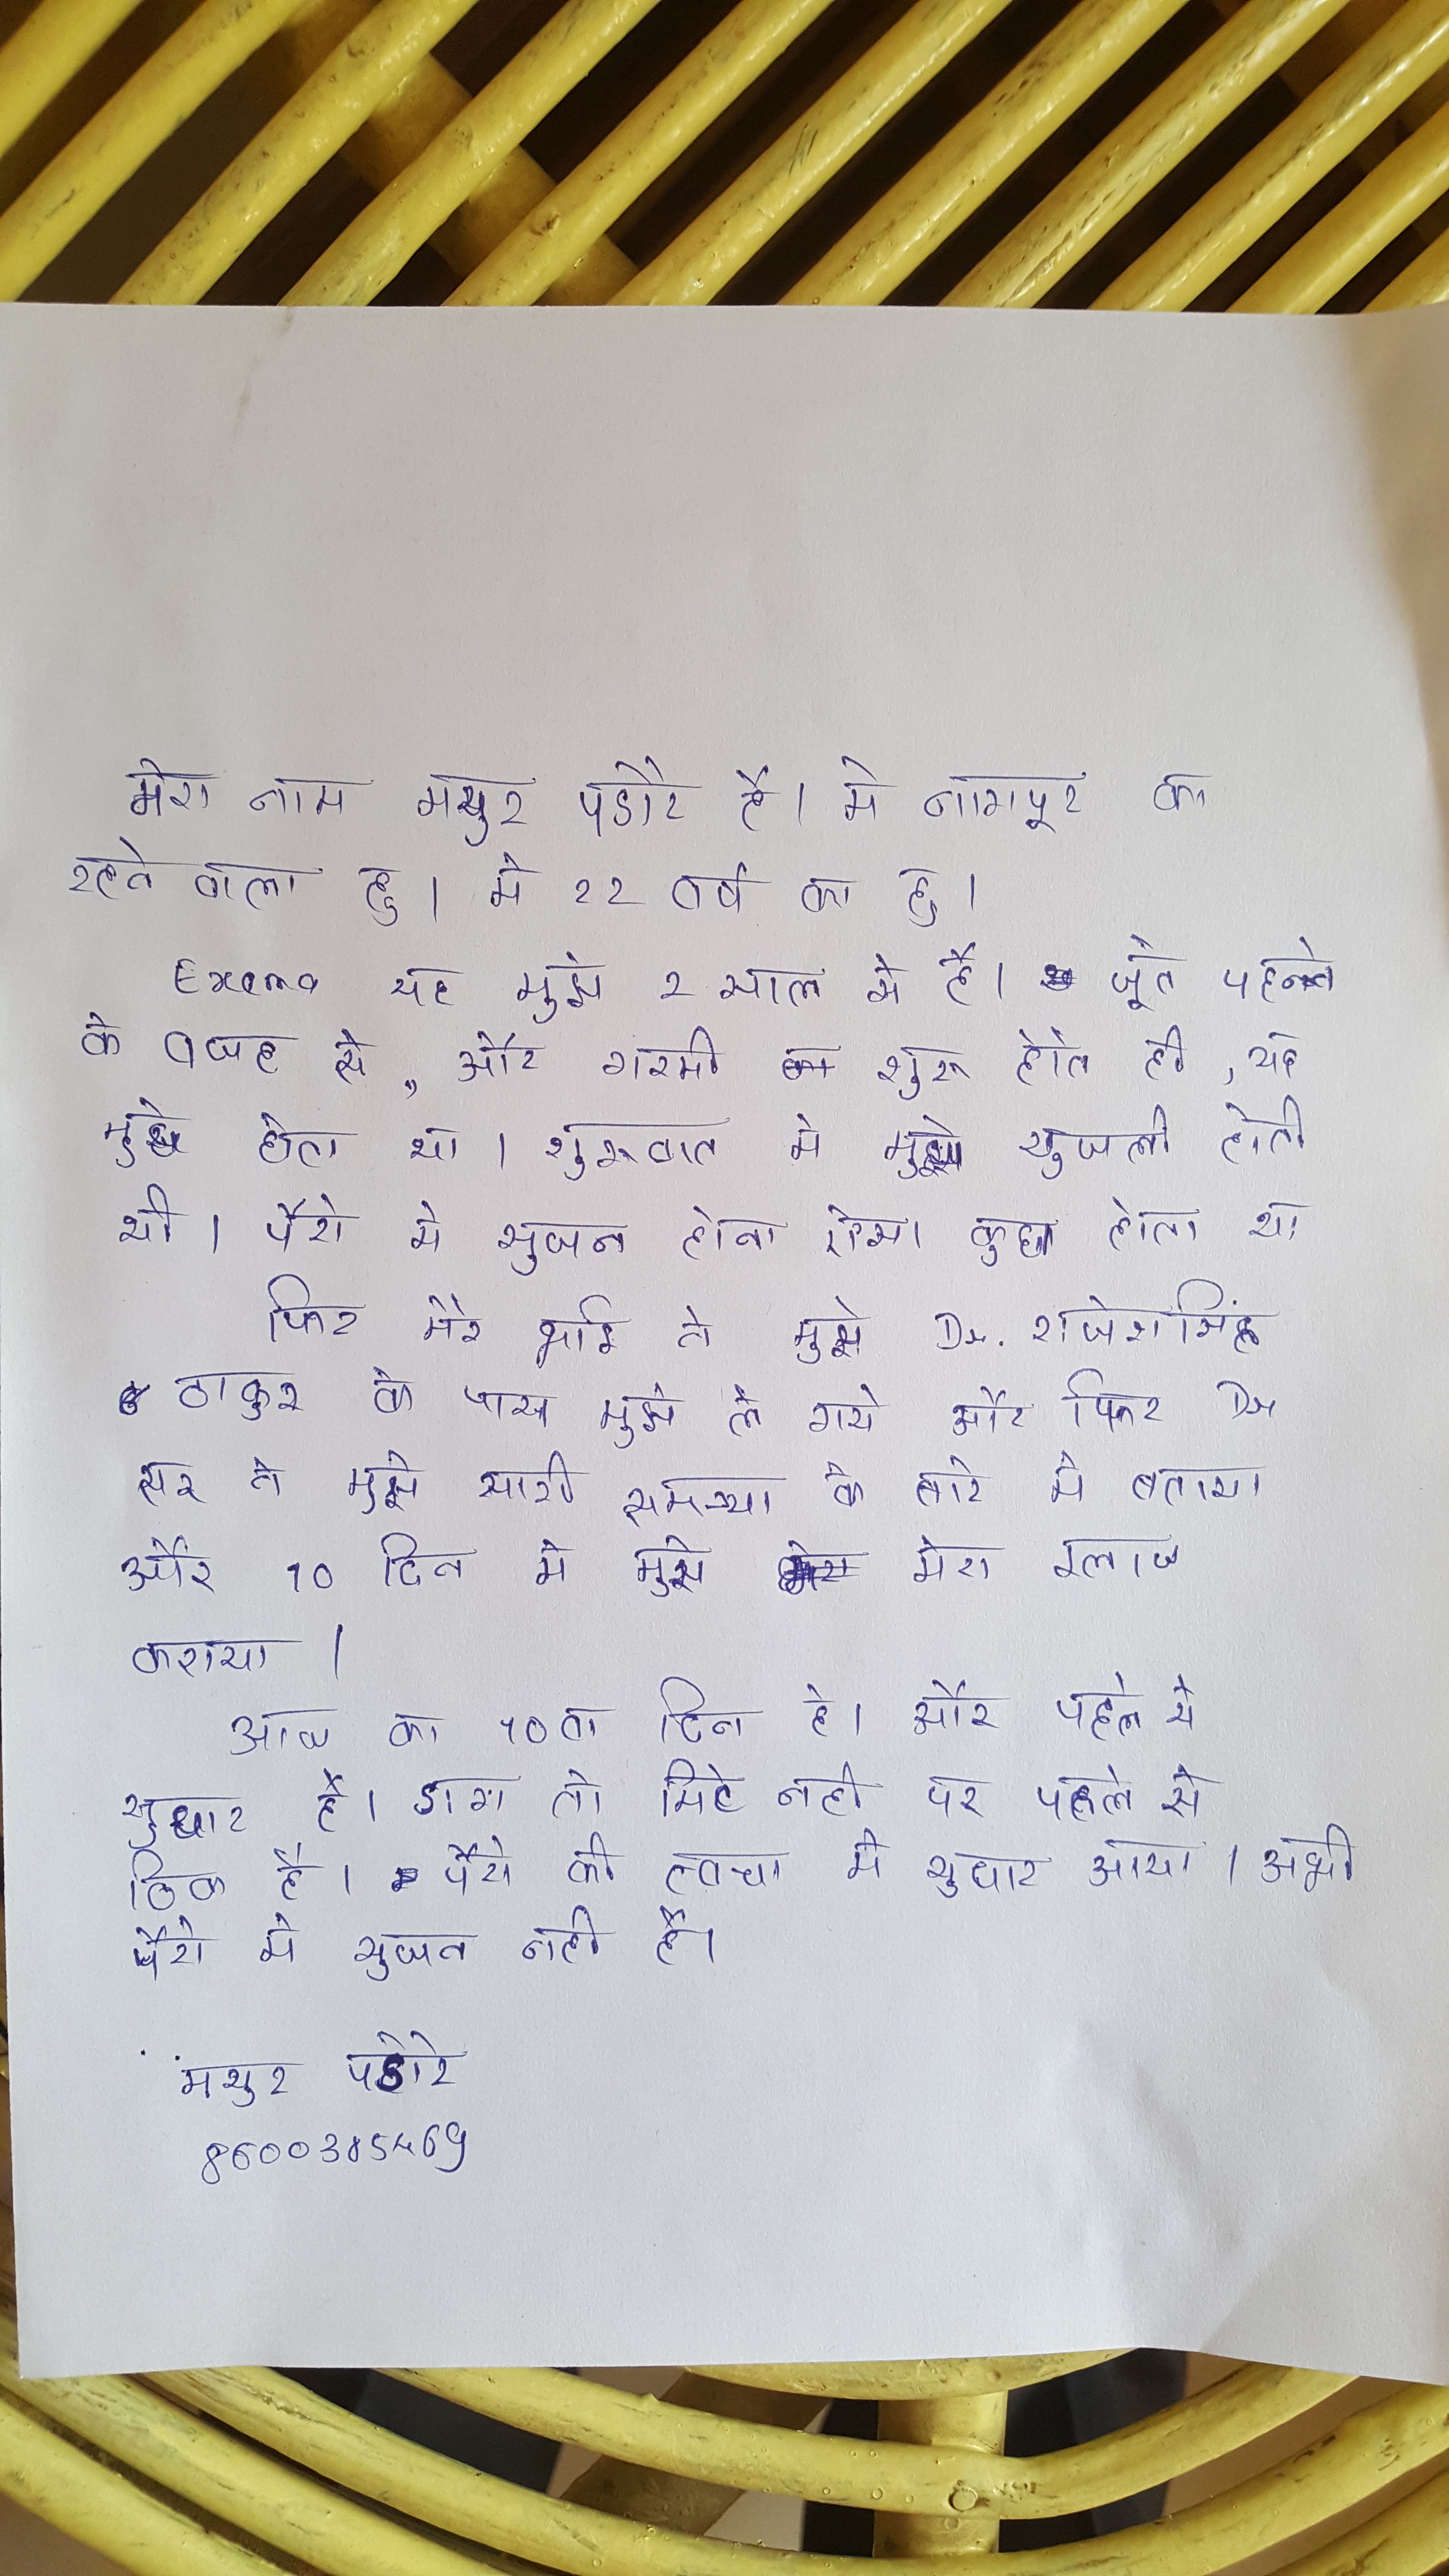 मेरा नाम मयुर पडोरे है। मे नागपूर का
रहने वाला हु। मे 22 वर्ष का हु।
Exema यह मुझे 2 साल से है। जूते पहनने
के वजह से, और गरमी शुरू होते ही, यह
मुझे होता था। शुरूवात मे मुझे खुजली होती
थी। पैरो मे सुजन होना ऐसा कुछ होता था
फिर मेरे भाई ने मुझे Dr. राजेशसिंह
ठाकुर के पास मुझे ले गये और फिर Dr
सर ने मुझे सारी समस्या के बारे मे बताया
और 10 दिन मे मुझे मेरा इलाज
कराया।
आज का 10 वा दिन है। और पहले से
सुधार है। डाग तो मिटे नही पर पहले से
ठिक है। पैरो की त्वचा मे सुधार आया। अभी
पैरो मे सुजन नही है।
मयुर पडोरे
8600385469